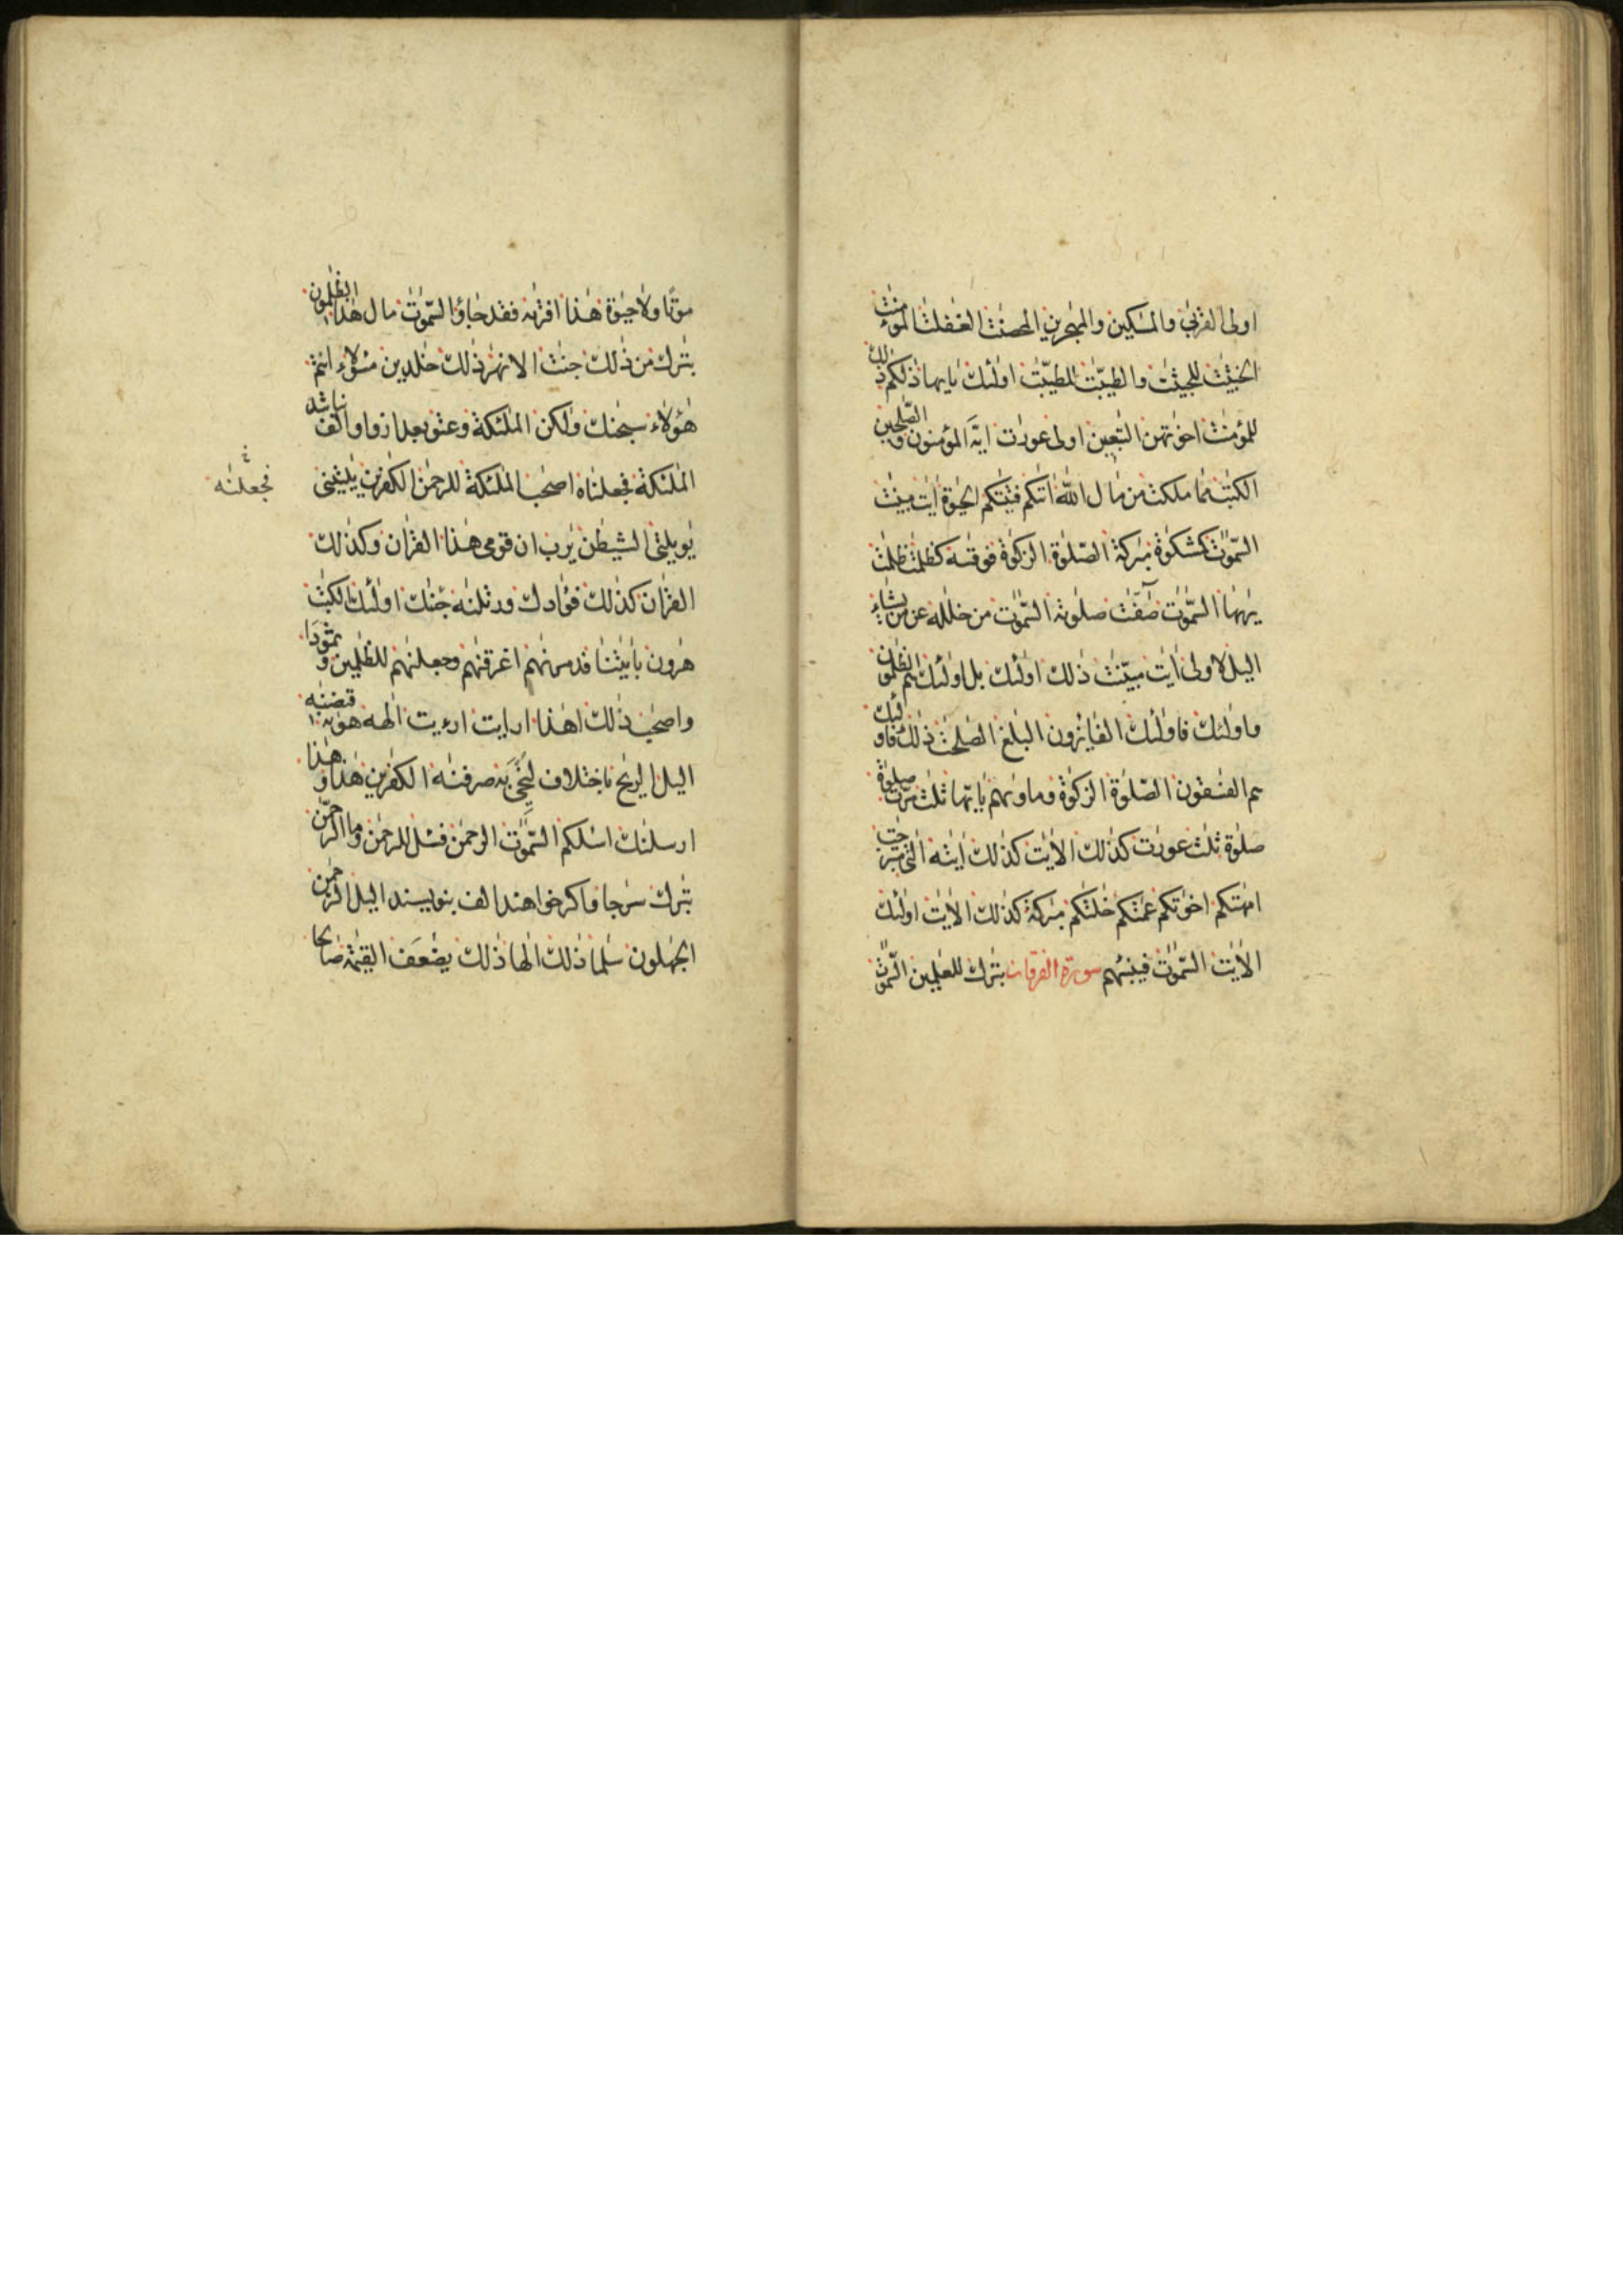 اولى القربى والمسكين والمهجرين المحصنت الغفلت المؤمنت
الخبيثت للخبيثت والطيبت للطيبت اولئك يايها ذلكم ذلك
للمؤمنت اخوتهن التبعين اولى عورت ايه المؤمنون والصلحين
الكتب مما ملكت من مال الله اتيكم فتيتكم الحيوة ايت مبينت
السموت كمشكوة مبركة الصلوة الزكوة فوقيه كظلمت ظلمت
يريها السموت صفت صلوته السموت من خلله عن من يشاء
اليل لاولى ايت مبينت ذلك اولئك بل اولئك هم الظلمون
واولئك فاولئك الفايزون البلغ الصلحت ذلك فاولئك
هم الفسقون الصلوة الزكوة وماويهم يايها ثلث مرت صلوة
صلوة ثلث عورت كذلك الايت كذلك ايته التى متبرجت
امهتكم اخوتكم عمتكم خلتكم مبركة كذلك الايت اولئك
الايت السموت فينبئهم سورة الفرقان تبرك للعلمين السموت
موتا ولا حيوة هذا افتريه فقد جاؤ السموت مال هذا الظلمون
تبرك من ذلك جنت الانهر ذلك خلدين مسؤلا ءانتم
هؤلاء سبحنك ولكن الملئكة وعتو بعد از واو الف نباشد
الملئكة فجعلناه اصحب الملئكة للرحمن الكفرين يليتنى
فجعلنه
يويلتى الشيطن يرب ان قومى هذا القران وكذلك
القران كذلك فؤادك ورتلنه جئنك اولئك الكتب
هرون بايتنا فدمرنهم اغرقنهم وجعلنهم للظلمين وثمودا
واصحب ذلك اهذا ارايت ارءيت الهه هويه قبضنه
اليل الريح باختلاف لنحيى به صرفنه الكفرين هذا وهذا
ارسلنك اسئلكم السموت الرحمن فسئل للرحمن وما الرحمن
تبرك سرجا واكر خواهند الف بنويسند اليل الرحمن
الجهلون سلما ذلك الها ذلك يضعف القيمة صالحا